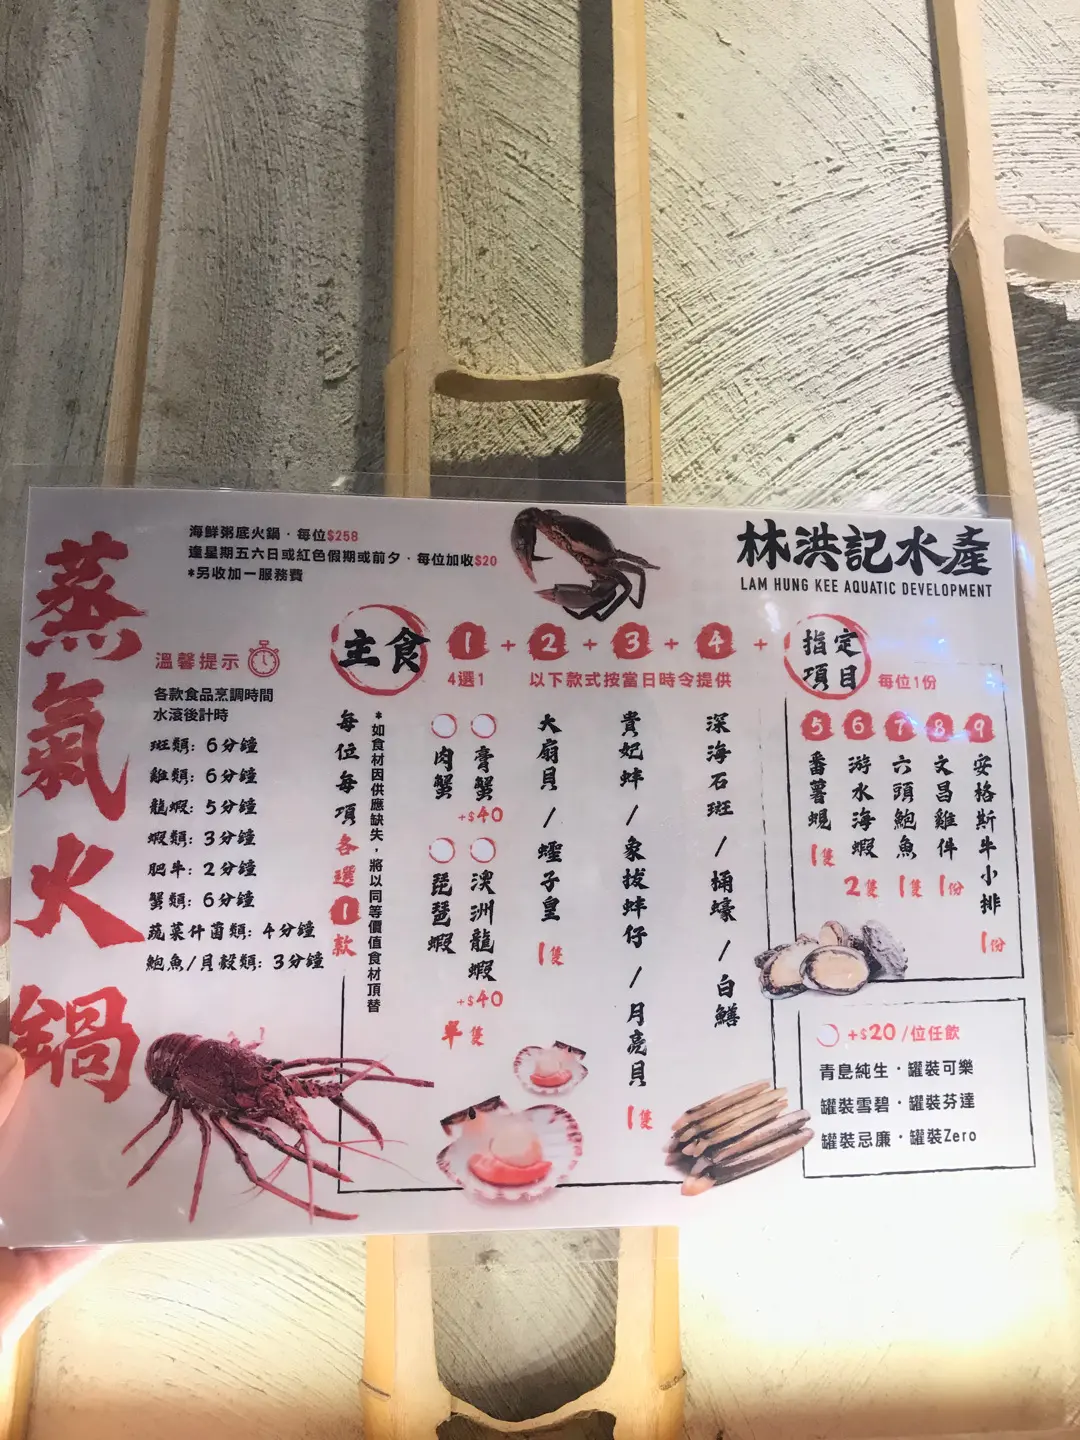 蒸氣火鍋
海鮮粥底火鍋・每位$258
逢星期五六日或紅色假期或前夕・每位加收$20
*另收加一服務費
林洪記水產
LAM HUNG KEE AQUATIC DEVELOPMENT
溫馨提示
各款食品烹調時間
水滾後計時
斑類: 6分鐘
雞類: 6分鐘
龍蝦: 5分鐘
蝦類: 3分鐘
肥牛: 2分鐘
蟹類: 6分鐘
蔬菜什菌類: 4分鐘
鮑魚/貝殼類: 3分鐘
主食 1 + 2 + 3 + 4 + 指定項目
4選1
以下款式按當日時令提供
每位1份
每位每項各選1款
*如食材因供應缺失，將以同等價值食材頂替
肉蟹
膏蟹
+$40
琵琶蝦
澳洲龍蝦
+$40
半隻
大扇貝/蟶子皇
1隻
貴妃蚌/象拔蚌仔/月亮貝
1隻
深海石斑/桶蠔/白鱔
5 6 7 8 9
番薯蜆
1隻
游水海蝦
2隻
六頭鮑魚
1隻
文昌雞件
1份
安格斯牛小排
1份
+$20/位任飲
青島純生・罐裝可樂
罐裝雪碧・罐裝芬達
罐裝忌廉・罐裝Zero